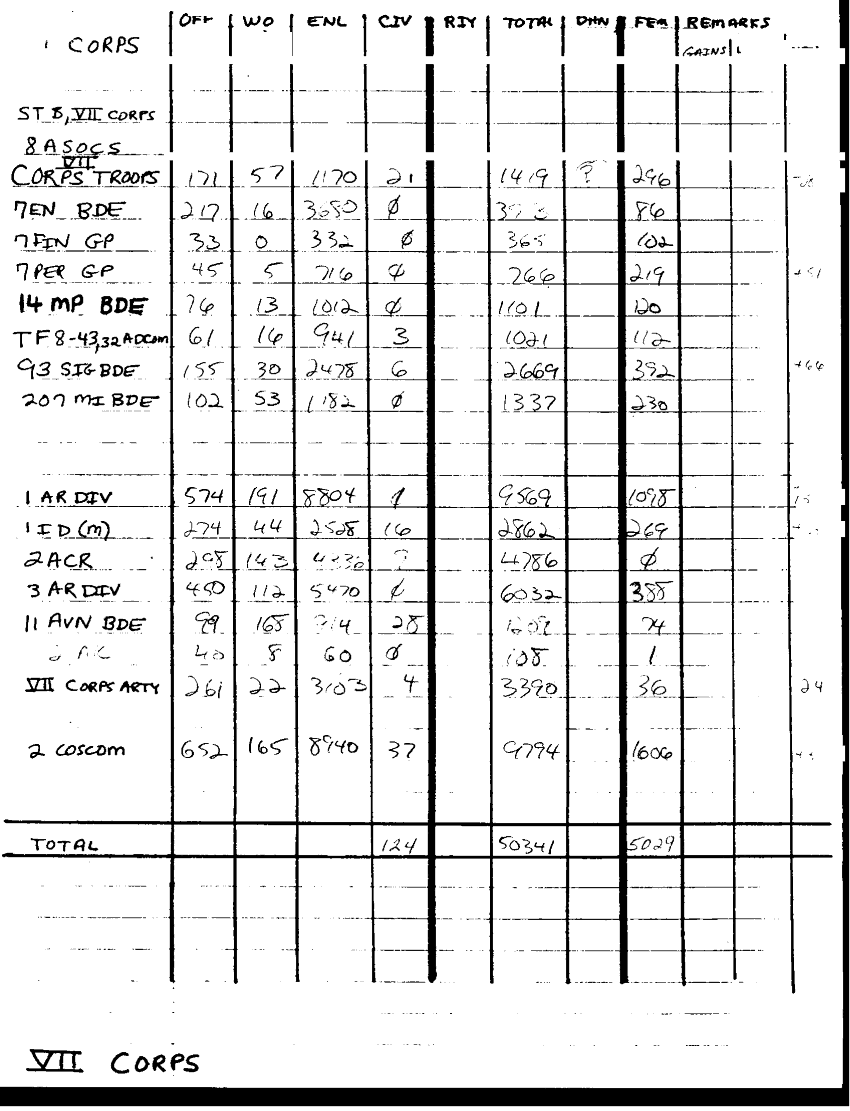 OFF WO ENL CIV RIY TOTAL DHN FEM REMARKS
CORPS GAINS L
STB, VII CORPS
8 ASOCS
VII
CORPS TROOPS 171 57 1170 21 1419 ? 296
7EN BDE 217 16 3680 Ø 86
7 FIN GP 33 0 332 Ø 365 102
7 PER GP 45 5 716 Ø 766 219 +51
14 MP BDE 76 13 1012 Ø 1101 120
TF 8-43, 32 ADCOM 61 16 941 3 1021 112
93 SIG BDE 155 30 2478 6 2669 392 +66
207 MI BDE 102 53 1182 Ø 1337 230
1 AR DIV 574 191 8804 9569 1098
1 ID (M) 274 44 2528 16 2862 269
2 ACR 298 143 ? 4786 Ø
3 AR DIV 450 112 5470 Ø 6032 388
11 AVN BDE 99 168 28 74
40 8 60 Ø 108 1
VII CORPS ARTY 261 22 3103 4 3390 36 24
2 COSCOM 652 165 8940 37 9794 1606
TOTAL 124 50341 5029
VII CORPS